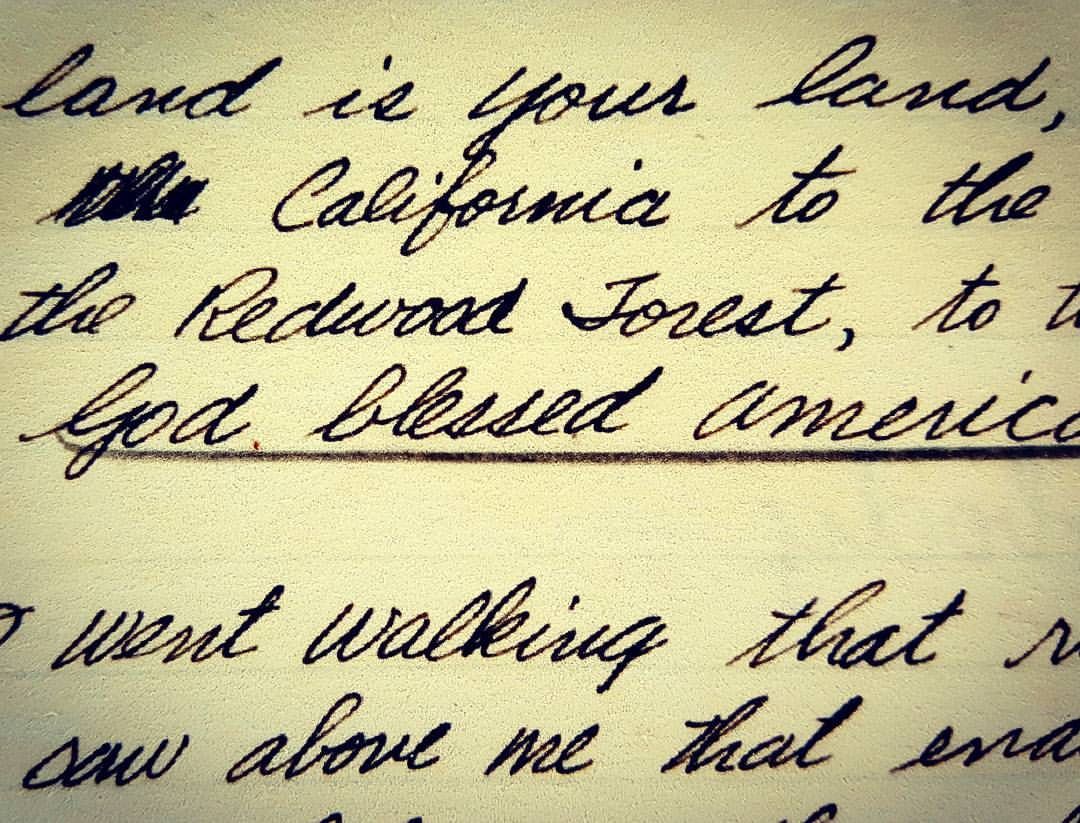 land is your land,
California to the
the Redwood Forest, to
God blessed america
went walking that
saw above me that